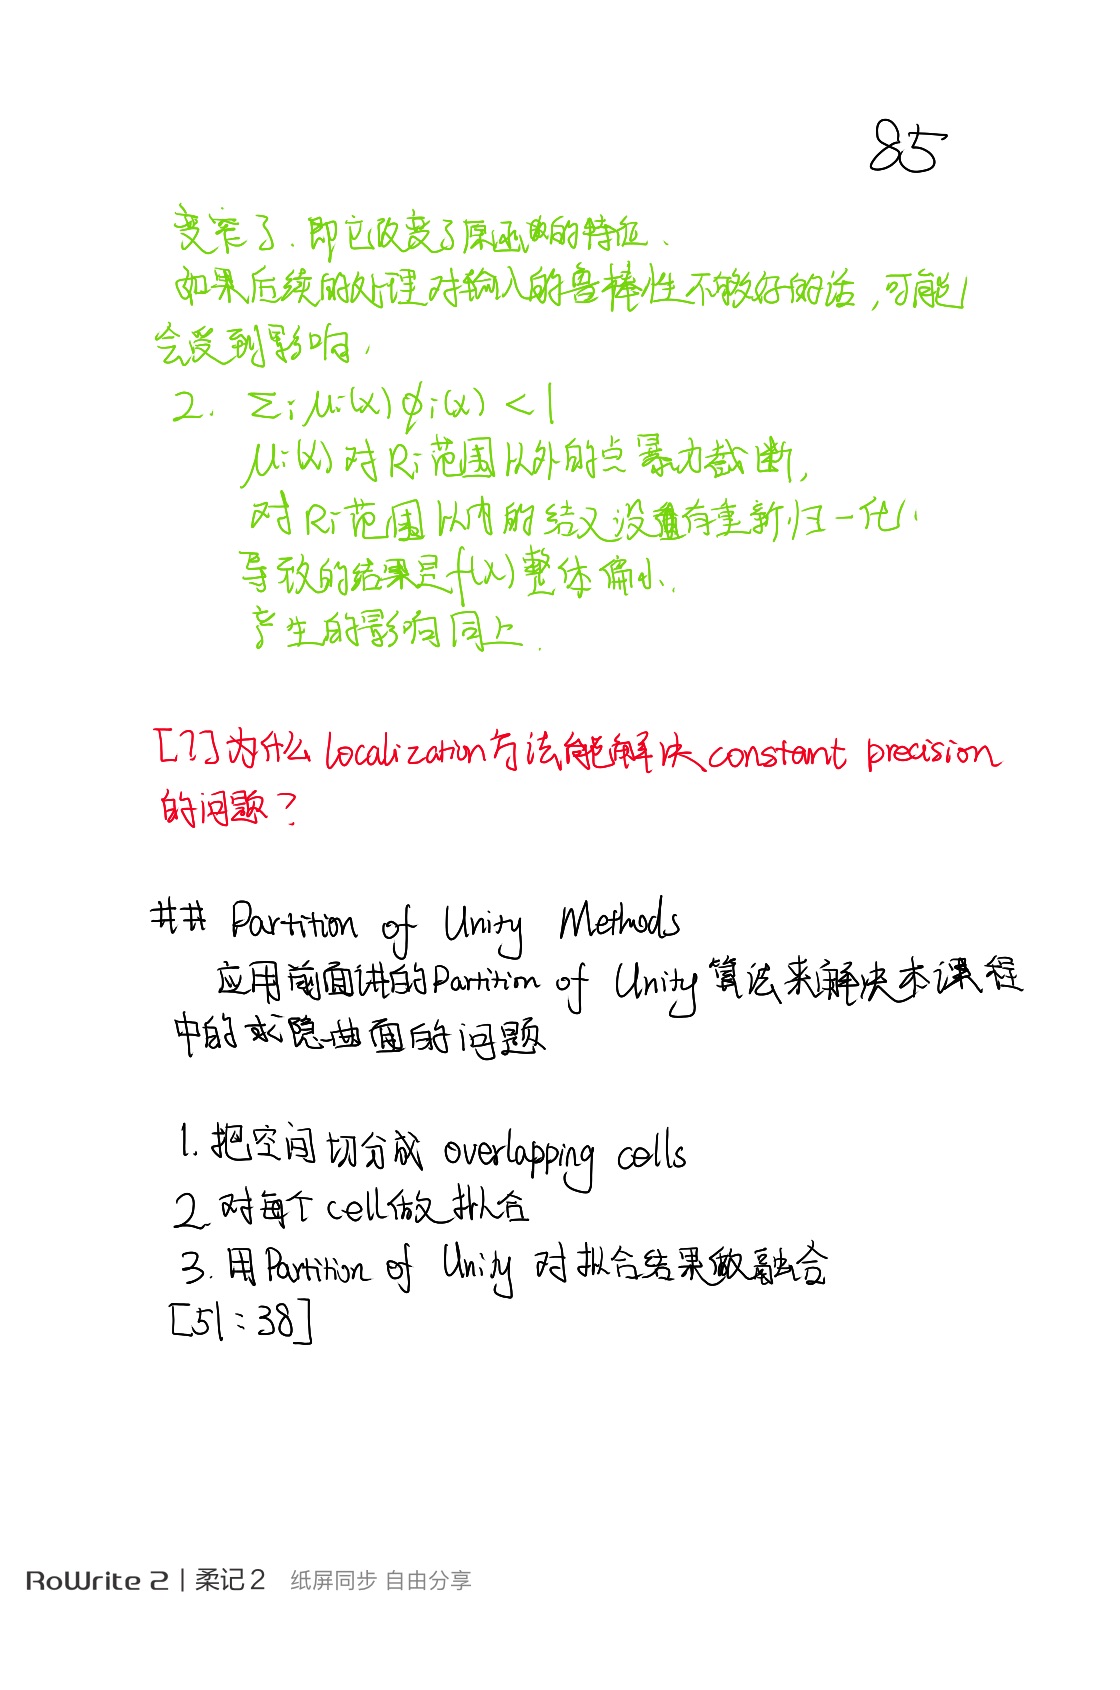 85
变窄了.即它改变了原函数的特征.
如果后续的处理对输入的鲁棒性不够好的话,可能
会受到影响.
2. Σi μi(x) ϕi(x) < 1
μi(x)对Ri范围以外的点暴力截断,
对Ri范围以内的结又没有重新归一化.
导致的结果是f(x)整体偏小.
产生的影响同上.
[?]为什么localization方法能解决constant precision
的问题?
## Partition of Unity Methods
应用前面讲的Partition of Unity算法来解决本课程
中的求隐曲面的问题
1. 把空间切分成 overlapping cells
2. 对每个cell做拟合
3. 用Partition of Unity 对拟合结果做融合
[51:38]
RoWrite 2 | 柔记2 纸屏同步 自由分享